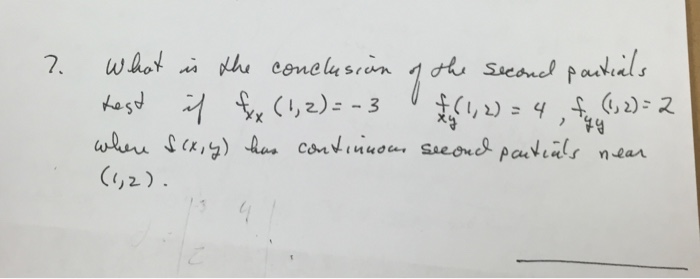 7. What is the conclusion of the second partials
test if fxx (1,2) = -3 fxy (1,2) = 4 , fyy (1,2) = 2
where f(x,y) has continuous second partials near
(1,2).
-3 4
2